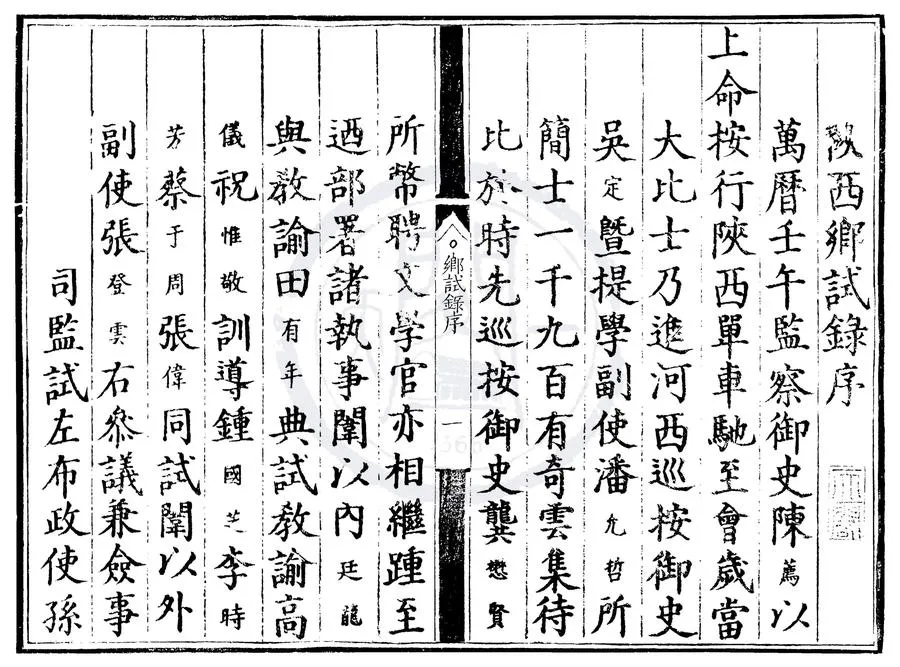 陝西鄉試錄序
萬曆壬午監察御史陳薦以
上命按行陝西單車馳至會歲當
大比士乃進河西巡按御史
吳定暨提學副使潘允哲所
簡士一千九百有奇雲集待
比於時先巡按御史龔懋賢
鄉試錄序 一
所幣聘文學官亦相繼踵至
迺部署諸執事闈以內廷龍
與教諭田有年典試教諭高
儀祝惟敬訓導鍾國芝李時
芳蔡于周張偉同試闈以外
副使張登雲右參議兼僉事
司監試左布政使孫